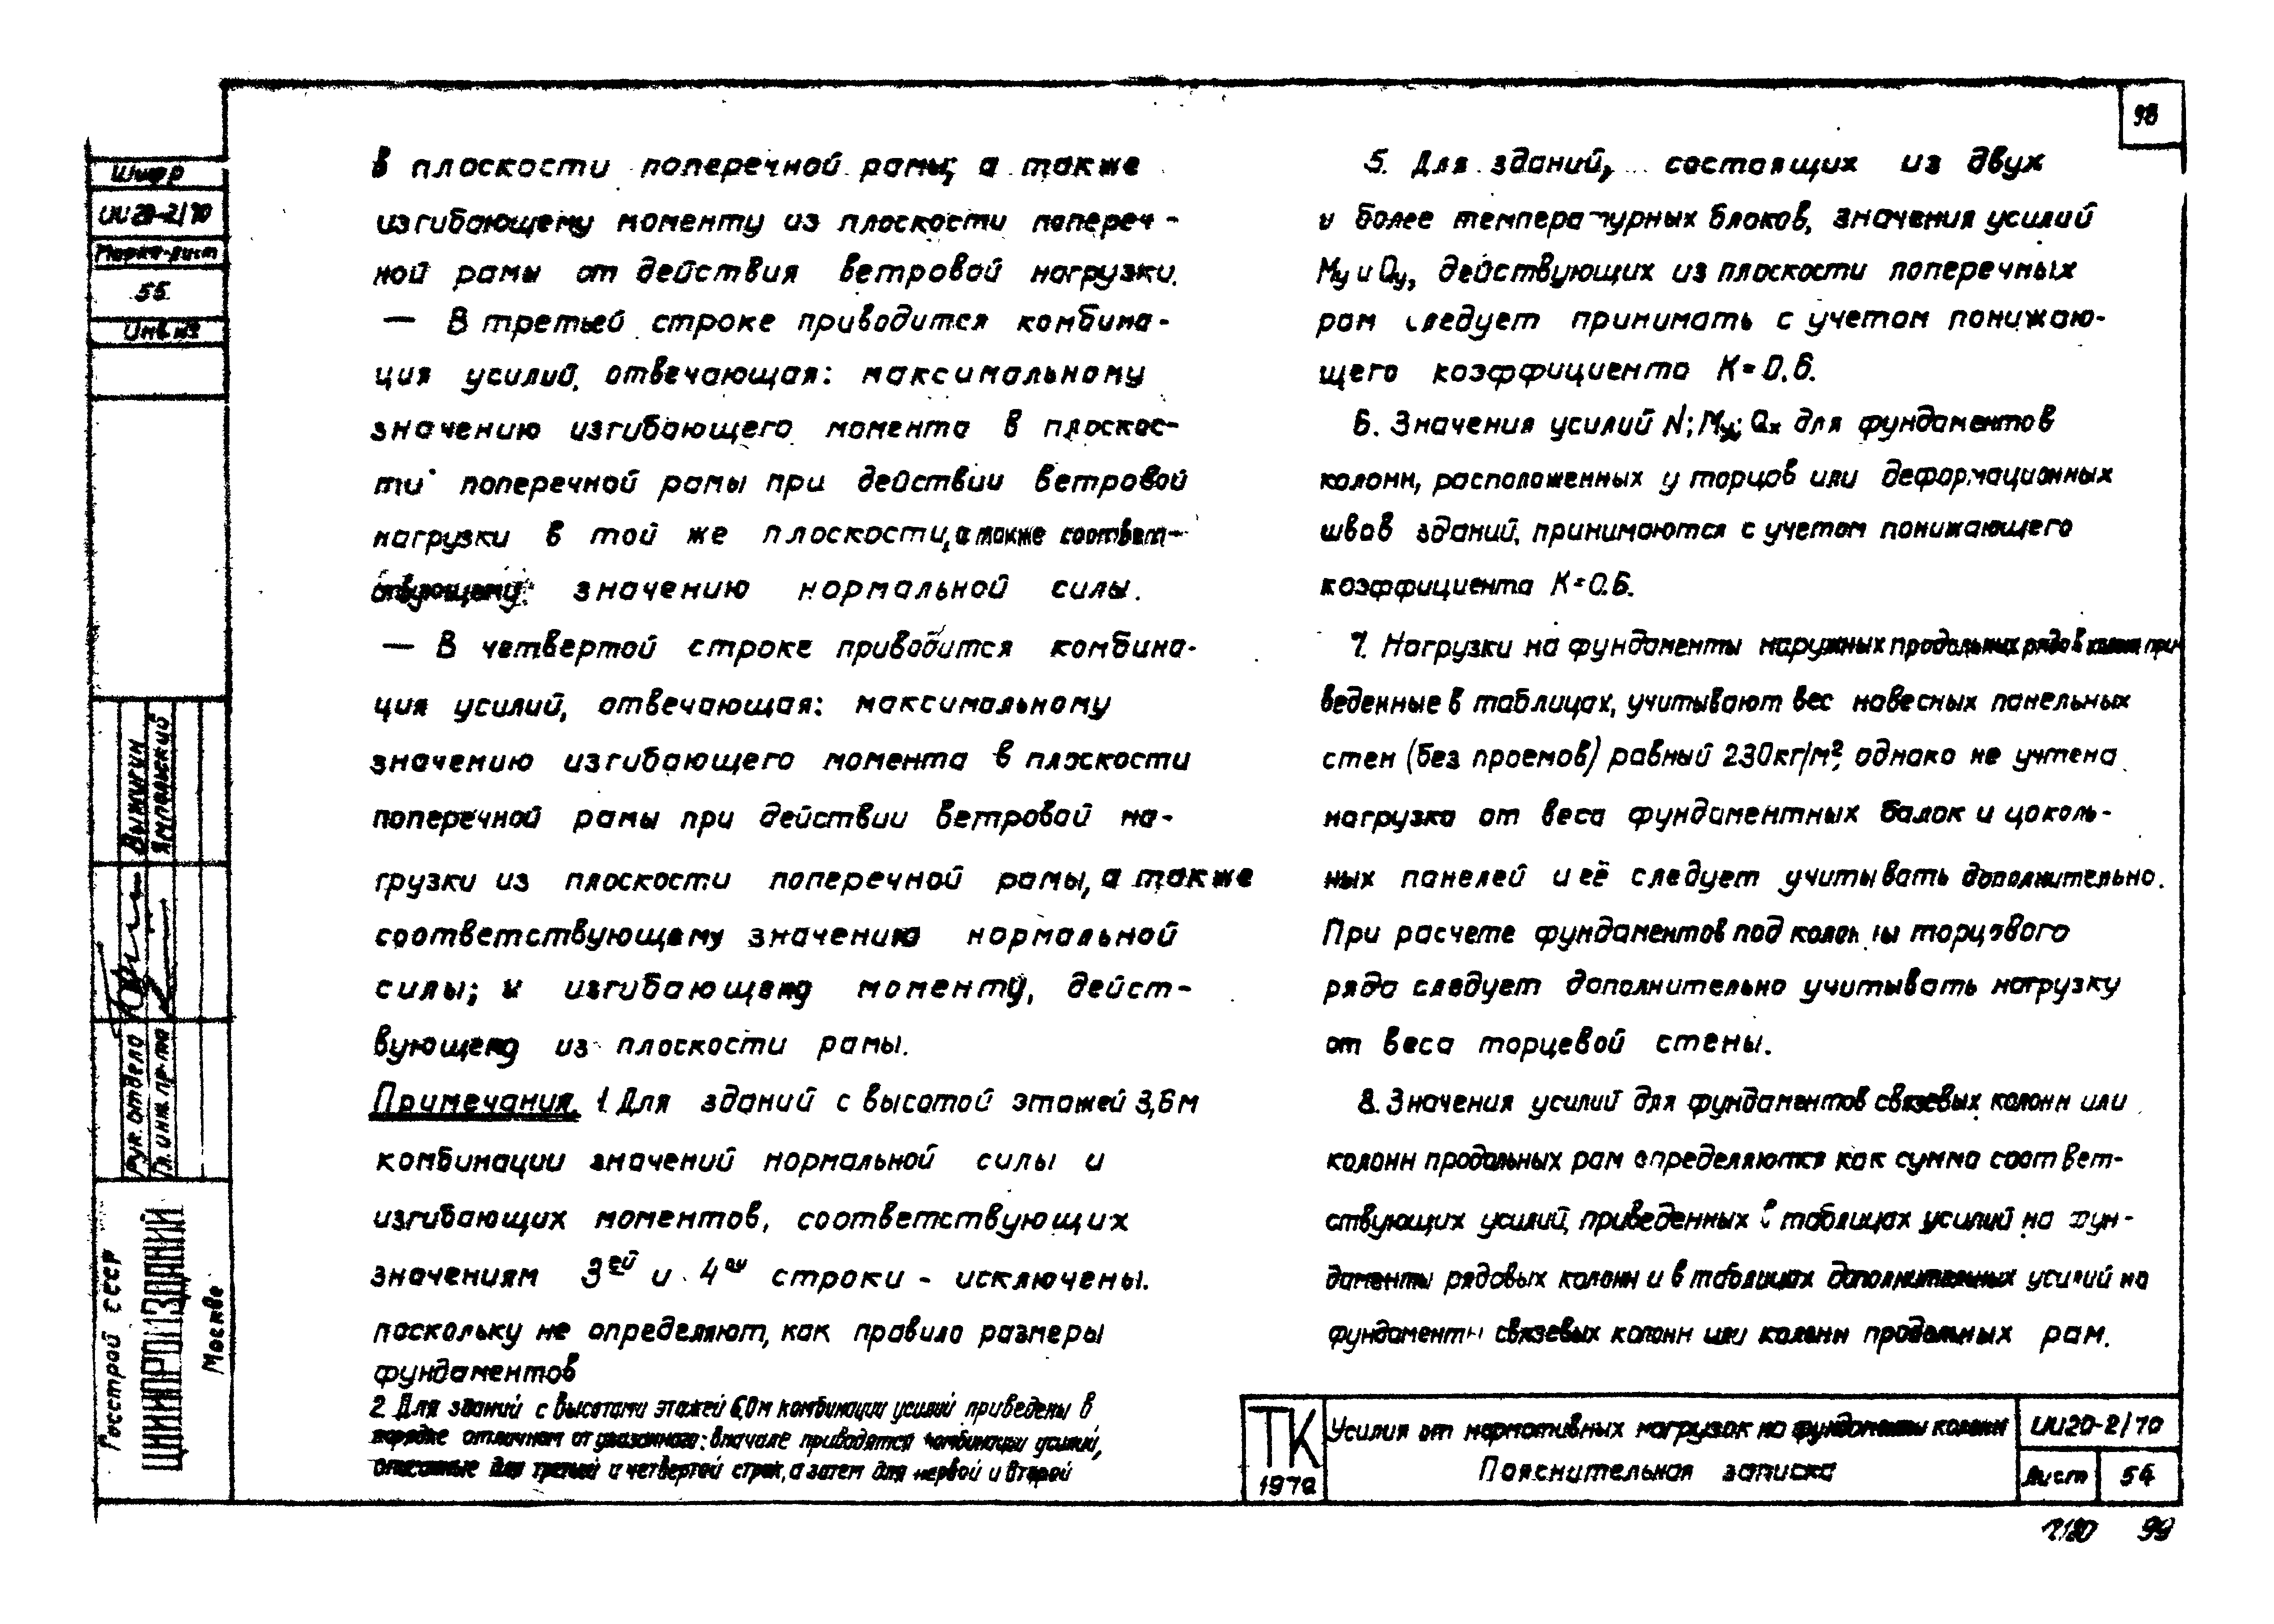 98
Шифр
ИИ20-2/70
Марка-лист
55
Инв №
Выжигин
Ямпольский
Рук. отдела
Гл. инж. пр-та
Госстрой СССР
ЦНИИПРОМЗДАНИЙ
Москва
в плоскости поперечной рамы; а также
изгибающему моменту из плоскости попереч-
ной рамы от действия ветровой нагрузки.
— В третьей строке приводится комбина-
ция усилий, отвечающая: максимальному
значению изгибающего момента в плоскос-
ти поперечной рамы при действии ветровой
нагрузки в той же плоскости, а также соответ-
ствующему значению нормальной силы.
— В четвертой строке приводится комбина-
ция усилий, отвечающая: максимальному
значению изгибающего момента в плоскости
поперечной рамы при действии ветровой на-
грузки из плоскости поперечной рамы, а также
соответствующему значению нормальной
силы; и изгибающему моменту, дейст-
вующему из плоскости рамы.
Примечания. 1. Для зданий с высотой этажей 3,6м
комбинации значений нормальной силы и
изгибающих моментов, соответствующих
значениям 3ей и 4ой строки - исключены.
поскольку не определяют, как правило размеры
фундаментов
2 Для зданий с высотами этажей 6,0м комбинации усилий приведены в
порядке отличном от указанного: вначале приводятся комбинации усилий,
описанные для третьей и четвертой строк, а затем для первой и второй
5. Для зданий, состоящих из двух
и более температурных блоков, значения усилий
Му и Qу, действующих из плоскости поперечных
рам следует принимать с учетом понижаю-
щего коэффициента К=0.6.
6. Значения усилий N; Мх; Qх для фундаментов
колонн, расположенных у торцов или деформационных
швов зданий, принимаются с учетом понижающего
коэффициента К=0.6.
7. Нагрузки на фундаменты наружных продольных рядов колонн при-
веденные в таблицах, учитывают вес навесных панельных
стен (без проемов) равный 230кг/м², однако не учтена
нагрузка от веса фундаментных балок и цоколь-
ных панелей и её следует учитывать дополнительно.
При расчете фундаментов под колонны торцового
ряда следует дополнительно учитывать нагрузку
от веса торцевой стены.
8. Значения усилий для фундаментов связевых колонн или
колонн продольных рам определяются как сумма соответ-
ствующих усилий, приведенных в таблицах усилий на фун-
даменты рядовых колонн и в таблицах дополнительных усилий на
фундаменты связевых колонн или колонн продольных рам.
ТК
1970
Усилия от нормативных нагрузок на фундаменты колонн
Пояснительная записка
ИИ20-2/70
Лист 54
99